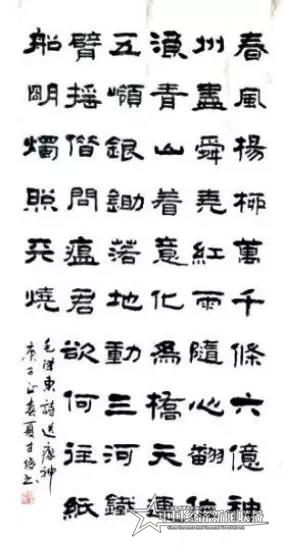 春風楊柳萬千條六億神
州盡舜堯紅雨隨心翻作
浪青山着意化爲橋天連
五嶺銀鋤落地動三河鐵
臂摇借問瘟君欲何往紙
船明燭照天燒
毛澤東詩送瘟神
庚子正春夏
中国经济新闻联播